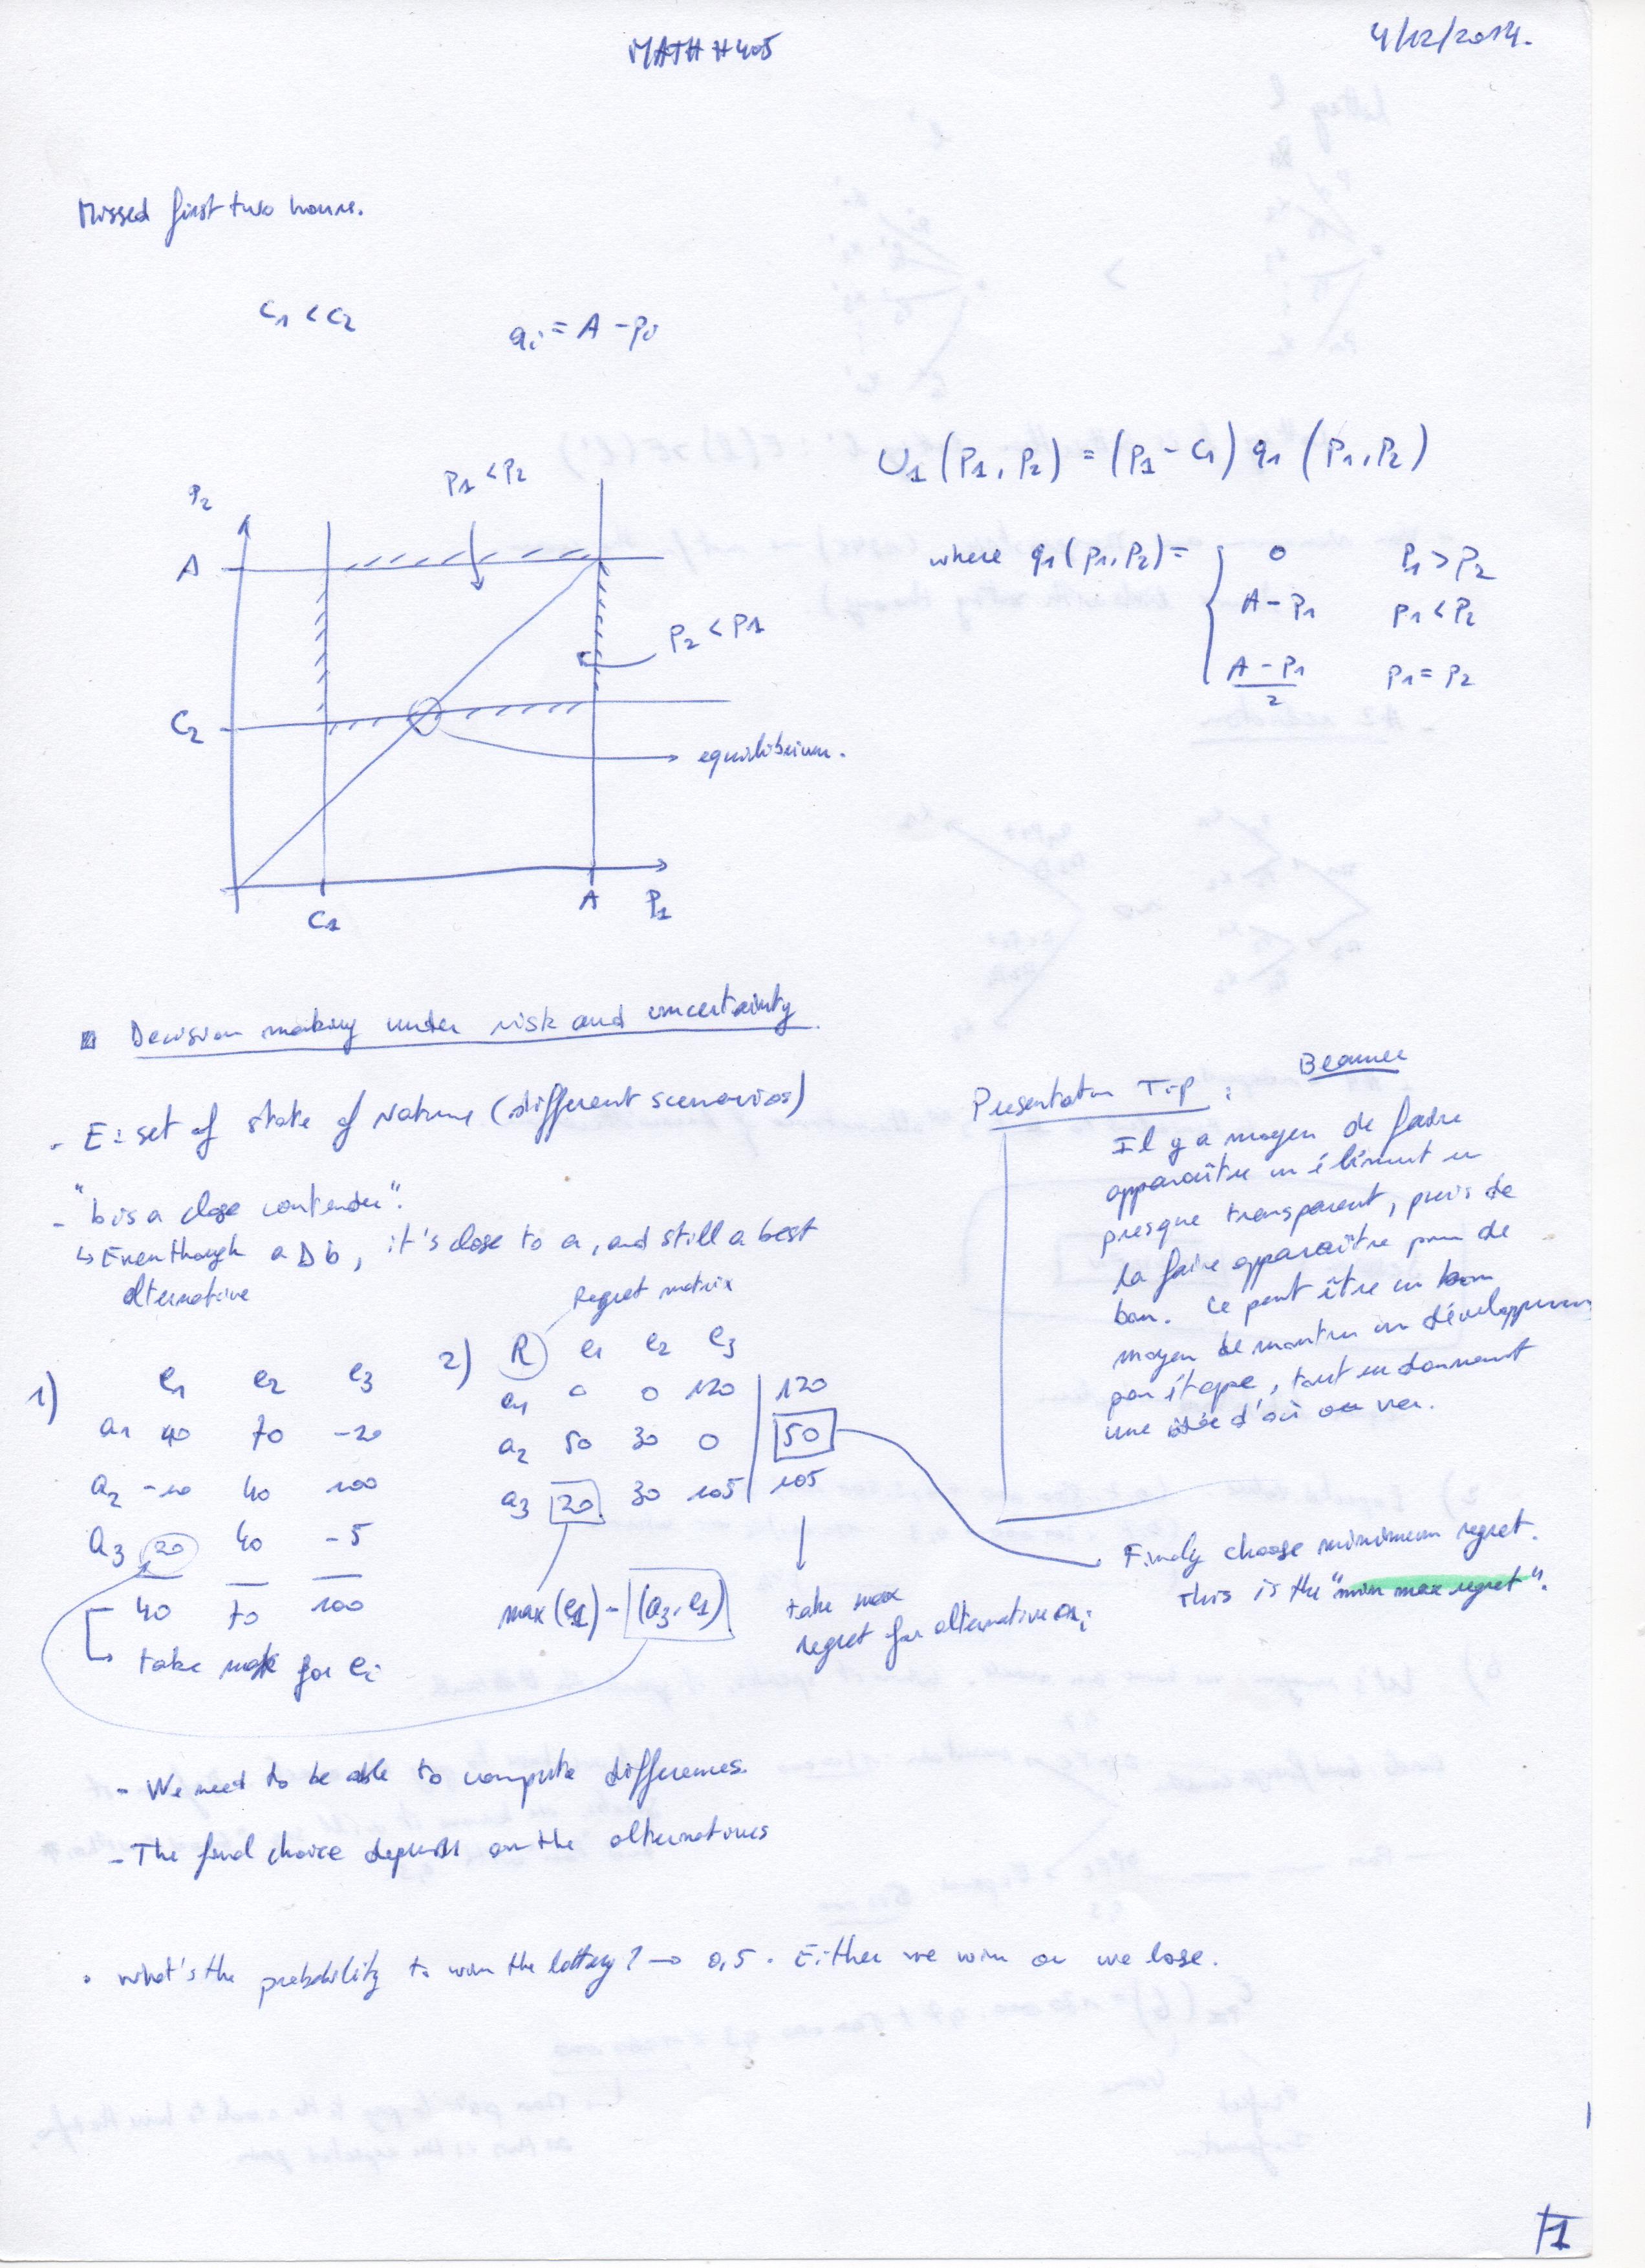 MATH #405
4/12/2014.
Missed first two hours.
C1 < C2
qi = A - pi
U1 (P1, P2) = (P1 - C1) q1 (P1, P2)
where q1(P1, P2) =
0 P1 > P2
A - P1 P1 < P2
A - P1
2
P1 = P2
P2
P1 < P2
A
P2 < P1
C2
equilibrium.
C1
A
P1
Decision making under risk and uncertainty
- E: set of state of Nature (different scenarios)
- "b is a close contender".
↳ Even though a D b, it's close to a, and still a best
alternative
Presentation Tip :
Beamer
Il y a moyen de faire
apparaître un élément en
presque transparent, puis de
la faire apparaître pour de
bon. Ce peut être un bon
moyen de montrer un développement
par étape, tout en donnant
une idée d'où on va.
1)
e1 e2 e3
a1 40 70 -20
a2 -10 40 100
a3 20 40 -5
40 70 100
↳ take max for ei
2)
Regret matrix
R e1 e2 e3
a1 0 0 120 | 120
a2 50 30 0 | 50
a3 20 30 105 | 105
max(e1) - (a3, e1)
take max
regret for alternative ai
Finaly choose minimum regret.
This is the "min max regret".
- We need to be able to compute differences.
- The final choice depends on the alternatives
• What's the probability to win the lottery? → 0,5. Either we win or we lose.
1